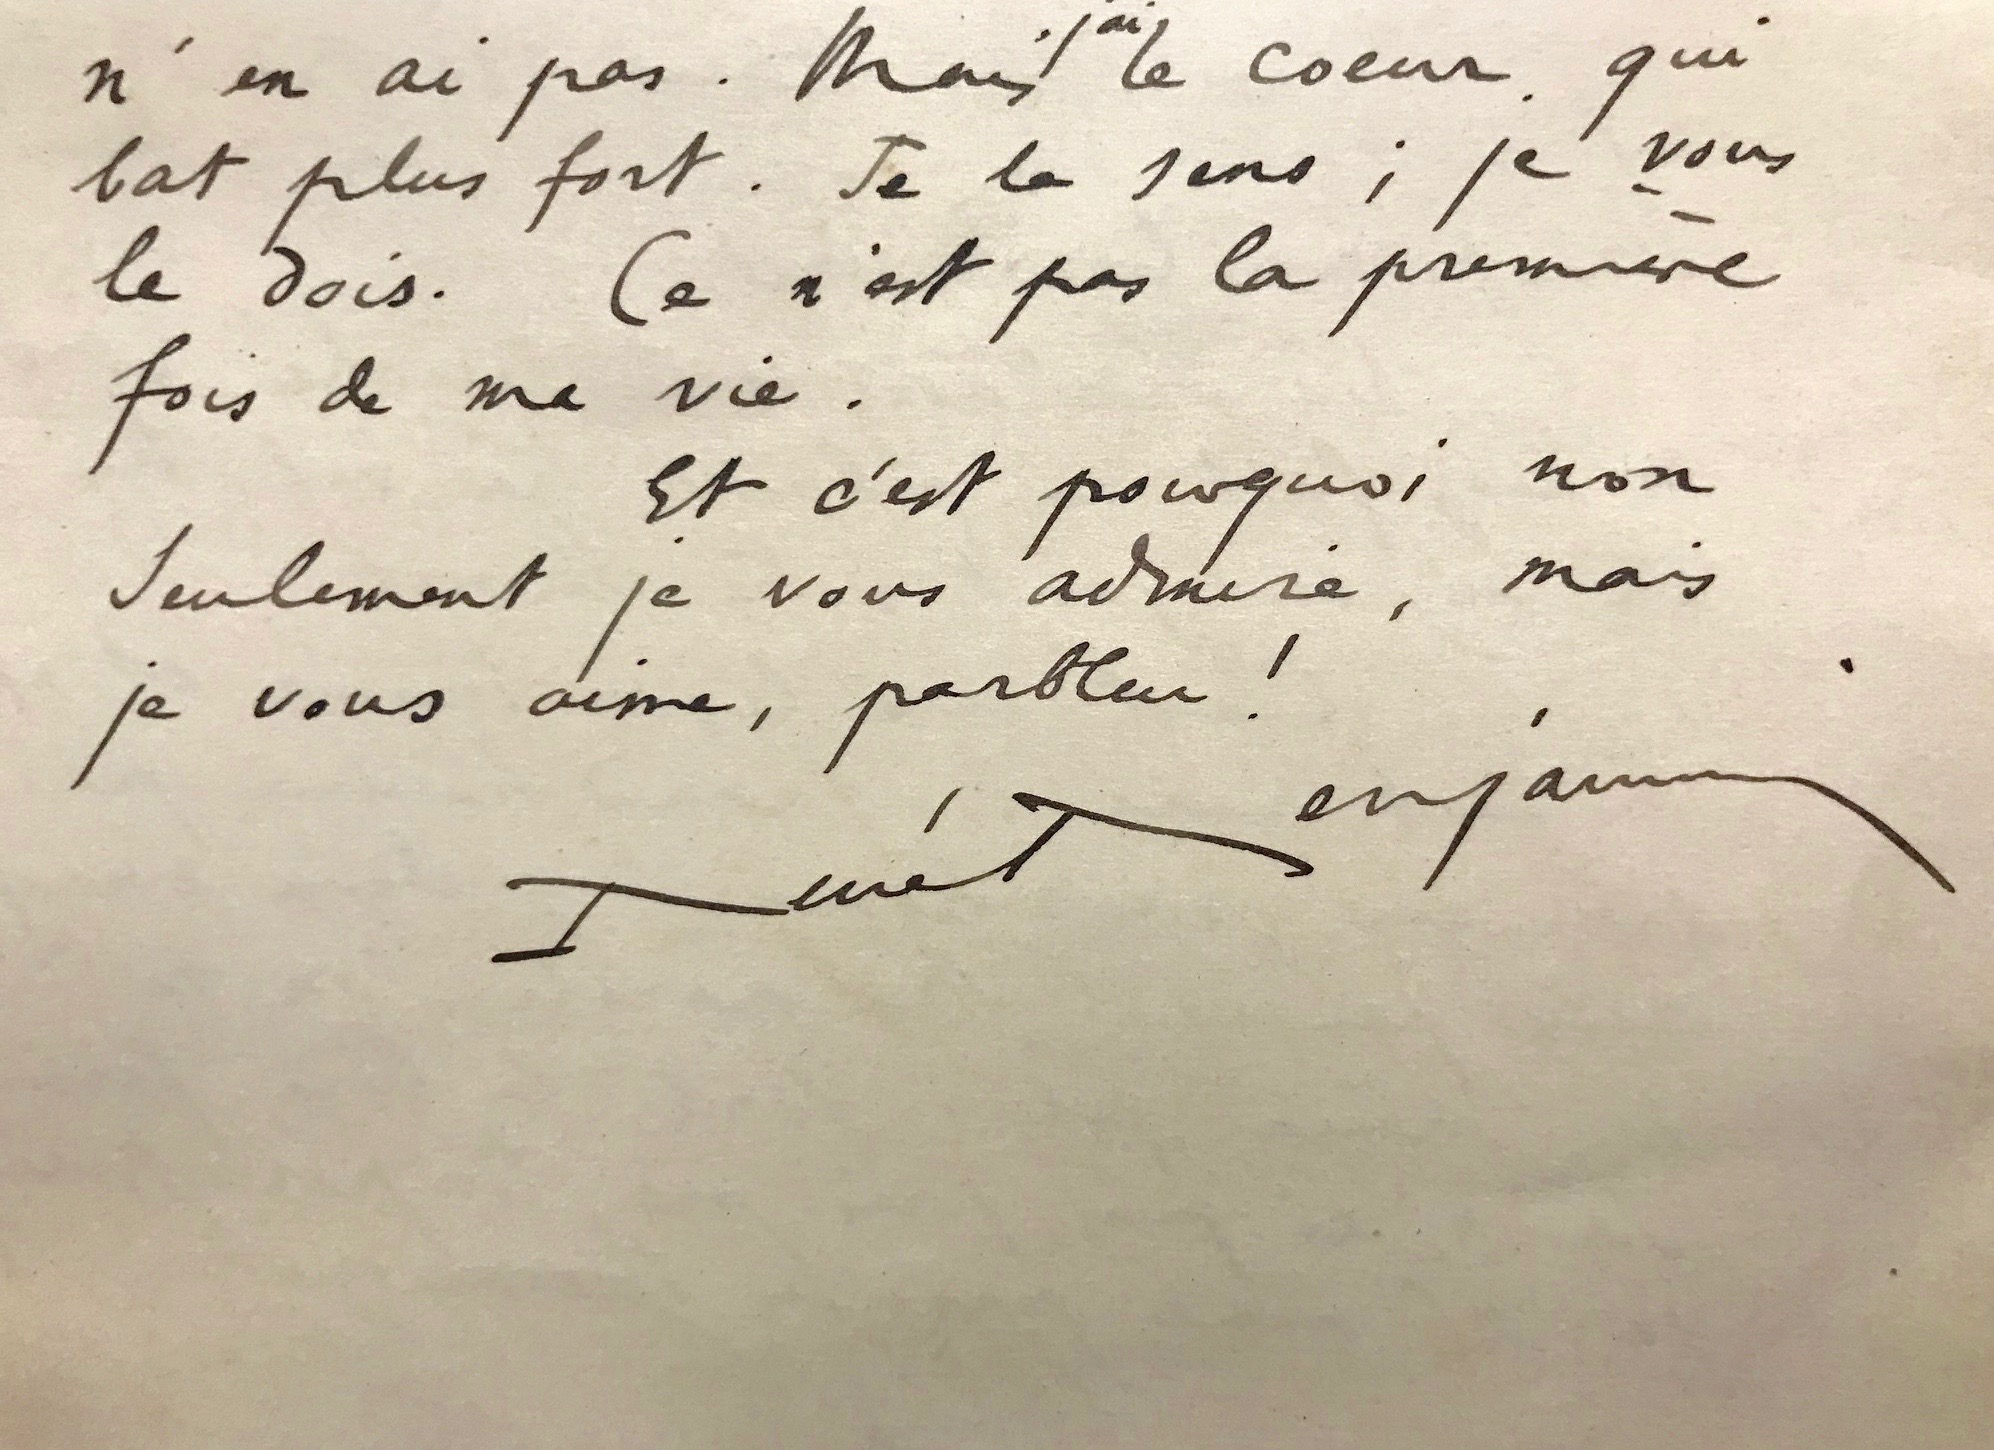 n'en ai pas. Mais j'ai le coeur qui
bat plus fort. Je le sens ; je vous
le dois. Ce n'est pas la première
fois de ma vie.
Et c'est pourquoi non
seulement je vous admire, mais
je vous aime, parbleu !
René Benjamin